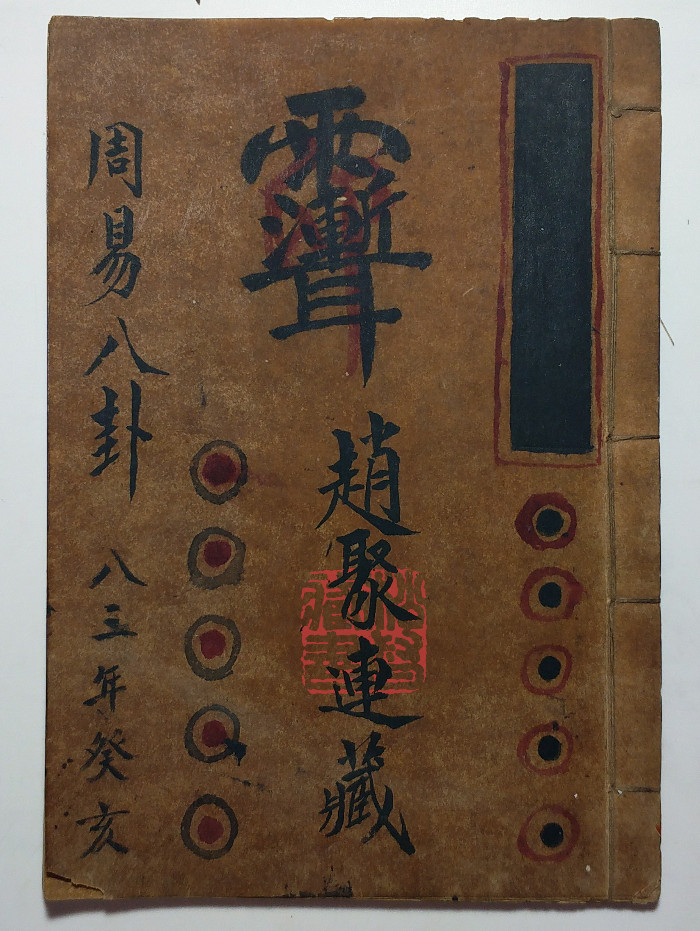 趙聚連藏
周易八卦 八三年癸亥